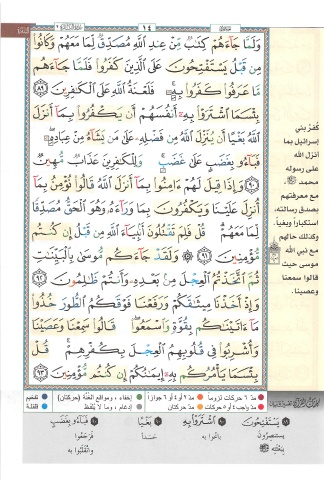 ١٤
وَلَمَّا جَاءَهُمْ كِتَٰبٌ مِّنْ عِندِ ٱللَّهِ مُصَدِّقٌ لِّمَا مَعَهُمْ وَكَانُوا۟
مِن قَبْلُ يَسْتَفْتِحُونَ عَلَى ٱلَّذِينَ كَفَرُوا۟ فَلَمَّا جَاءَهُم
مَّا عَرَفُوا۟ كَفَرُوا۟ بِهِۦ فَلَعْنَةُ ٱللَّهِ عَلَى ٱلْكَٰفِرِينَ ٨٩
بِئْسَمَا ٱشْتَرَوْا۟ بِهِۦٓ أَنفُسَهُمْ أَن يَكْفُرُوا۟ بِمَآ أَنزَلَ
ٱللَّهُ بَغْيًا أَن يُنَزِّلَ ٱللَّهُ مِن فَضْلِهِۦ عَلَىٰ مَن يَشَآءُ مِنْ عِبَادِهِۦ
فَبَآءُو بِغَضَبٍ عَلَىٰ غَضَبٍ وَلِلْكَٰفِرِينَ عَذَابٌ مُّهِينٌ
٩٠ وَإِذَا قِيلَ لَهُمْ ءَامِنُوا۟ بِمَآ أَنزَلَ ٱللَّهُ قَالُوا۟ نُؤْمِنُ بِمَآ
أُنزِلَ عَلَيْنَا وَيَكْفُرُونَ بِمَا وَرَآءَهُۥ وَهُوَ ٱلْحَقُّ مُصَدِّقًا
لِّمَا مَعَهُمْ قُلْ فَلِمَ تَقْتُلُونَ أَنۢبِيَآءَ ٱللَّهِ مِن قَبْلُ إِن كُنتُم
مُّؤْمِنِينَ ٩١ وَلَقَدْ جَآءَكُم مُّوسَىٰ بِٱلْبَيِّنَٰتِ
ثُمَّ ٱتَّخَذْتُمُ ٱلْعِجْلَ مِنۢ بَعْدِهِۦ وَأَنتُمْ ظَٰلِمُونَ ٩٢
وَإِذْ أَخَذْنَا مِيثَٰقَكُمْ وَرَفَعْنَا فَوْقَكُمُ ٱلطُّورَ خُذُوا۟
مَآ ءَاتَيْنَٰكُم بِقُوَّةٍ وَٱسْمَعُوا۟ قَالُوا۟ سَمِعْنَا وَعَصَيْنَا
وَأُشْرِبُوا۟ فِى قُلُوبِهِمُ ٱلْعِجْلَ بِكُفْرِهِمْ قُلْ
بِئْسَمَا يَأْمُرُكُم بِهِۦٓ إِيمَٰنُكُمْ إِن كُنتُم مُّؤْمِنِينَ ٩٣
كُفرُ بني
إسرائيل بما
أنزل الله
على رسوله
محمد ﷺ
مع معرفتهم
بصدق رسالته،
استكباراً وبغياً،
وكذلك حالهم
مع نبي الله
موسى حيث
قالوا سمعنا
وعصينا.
مدّ ٦ حركات لزوماً مدّ ٢ أو ٤ أو ٦ جوازاً إخفاء، ومواقع الغنّة (حركتان) تفخيم
مدّ واجب ٤ أو ٥ حركات مدّ حركتان إدغام، وما لا يُلفظ قلقلة
يَسْتَفْتِحُونَ
يستنصرون
ٱشْتَرَوْا۟ بِهِۦٓ
باعوا به
بَغْيًا
حسداً
فَبَآءُو بِغَضَبٍ
فرَجَعُوا
وانْقَلَبُوا به